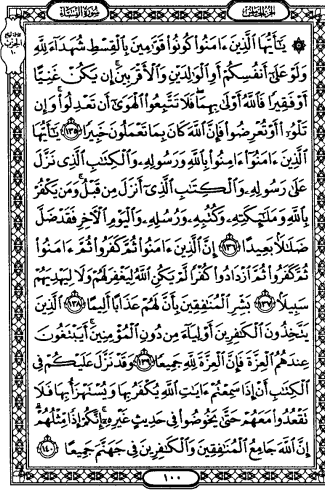 الجزء الخامس
سورة النساء
يَٰٓأَيُّهَا ٱلَّذِينَ ءَامَنُوا۟ كُونُوا۟ قَوَّٰمِينَ بِٱلْقِسْطِ شُهَدَآءَ لِلَّهِ
وَلَوْ عَلَىٰٓ أَنفُسِكُمْ أَوِ ٱلْوَٰلِدَيْنِ وَٱلْأَقْرَبِينَ ۚ إِن يَكُنْ غَنِيًّا
أَوْ فَقِيرًا فَٱللَّهُ أَوْلَىٰ بِهِمَا ۖ فَلَا تَتَّبِعُوا۟ ٱلْهَوَىٰٓ أَن تَعْدِلُوا۟ ۚ وَإِن
تَلْوُۥٓا۟ أَوْ تُعْرِضُوا۟ فَإِنَّ ٱللَّهَ كَانَ بِمَا تَعْمَلُونَ خَبِيرًا ١٣٥ يَٰٓأَيُّهَا
ٱلَّذِينَ ءَامَنُوٓا۟ ءَامِنُوا۟ بِٱللَّهِ وَرَسُولِهِۦ وَٱلْكِتَٰبِ ٱلَّذِى نَزَّلَ
عَلَىٰ رَسُولِهِۦ وَٱلْكِتَٰبِ ٱلَّذِىٓ أَنزَلَ مِن قَبْلُ ۚ وَمَن يَكْفُرْ
بِٱللَّهِ وَمَلَٰٓئِكَتِهِۦ وَكُتُبِهِۦ وَرُسُلِهِۦ وَٱلْيَوْمِ ٱلْءَاخِرِ فَقَدْ ضَلَّ
ضَلَٰلًۢا بَعِيدًا ١٣٦ إِنَّ ٱلَّذِينَ ءَامَنُوا۟ ثُمَّ كَفَرُوا۟ ثُمَّ ءَامَنُوا۟
ثُمَّ كَفَرُوا۟ ثُمَّ ٱزْدَادُوا۟ كُفْرًا لَّمْ يَكُنِ ٱللَّهُ لِيَغْفِرَ لَهُمْ وَلَا لِيَهْدِيَهُمْ
سَبِيلًۢا ١٣٧ بَشِّرِ ٱلْمُنَٰفِقِينَ بِأَنَّ لَهُمْ عَذَابًا أَلِيمًا ١٣٨ ٱلَّذِينَ
يَتَّخِذُونَ ٱلْكَٰفِرِينَ أَوْلِيَآءَ مِن دُونِ ٱلْمُؤْمِنِينَ ۚ أَيَبْتَغُونَ
عِندَهُمُ ٱلْعِزَّةَ فَإِنَّ ٱلْعِزَّةَ لِلَّهِ جَمِيعًا ١٣٩ وَقَدْ نَزَّلَ عَلَيْكُمْ فِى
ٱلْكِتَٰبِ أَنْ إِذَا سَمِعْتُمْ ءَايَٰتِ ٱللَّهِ يُكْفَرُ بِهَا وَيُسْتَهْزَأُ بِهَا فَلَا
تَقْعُدُوا۟ مَعَهُمْ حَتَّىٰ يَخُوضُوا۟ فِى حَدِيثٍ غَيْرِهِۦٓ ۚ إِنَّكُمْ إِذًا مِّثْلُهُمْ ۗ
إِنَّ ٱللَّهَ جَامِعُ ٱلْمُنَٰفِقِينَ وَٱلْكَٰفِرِينَ فِى جَهَنَّمَ جَمِيعًا ١٤٠
١٠٠